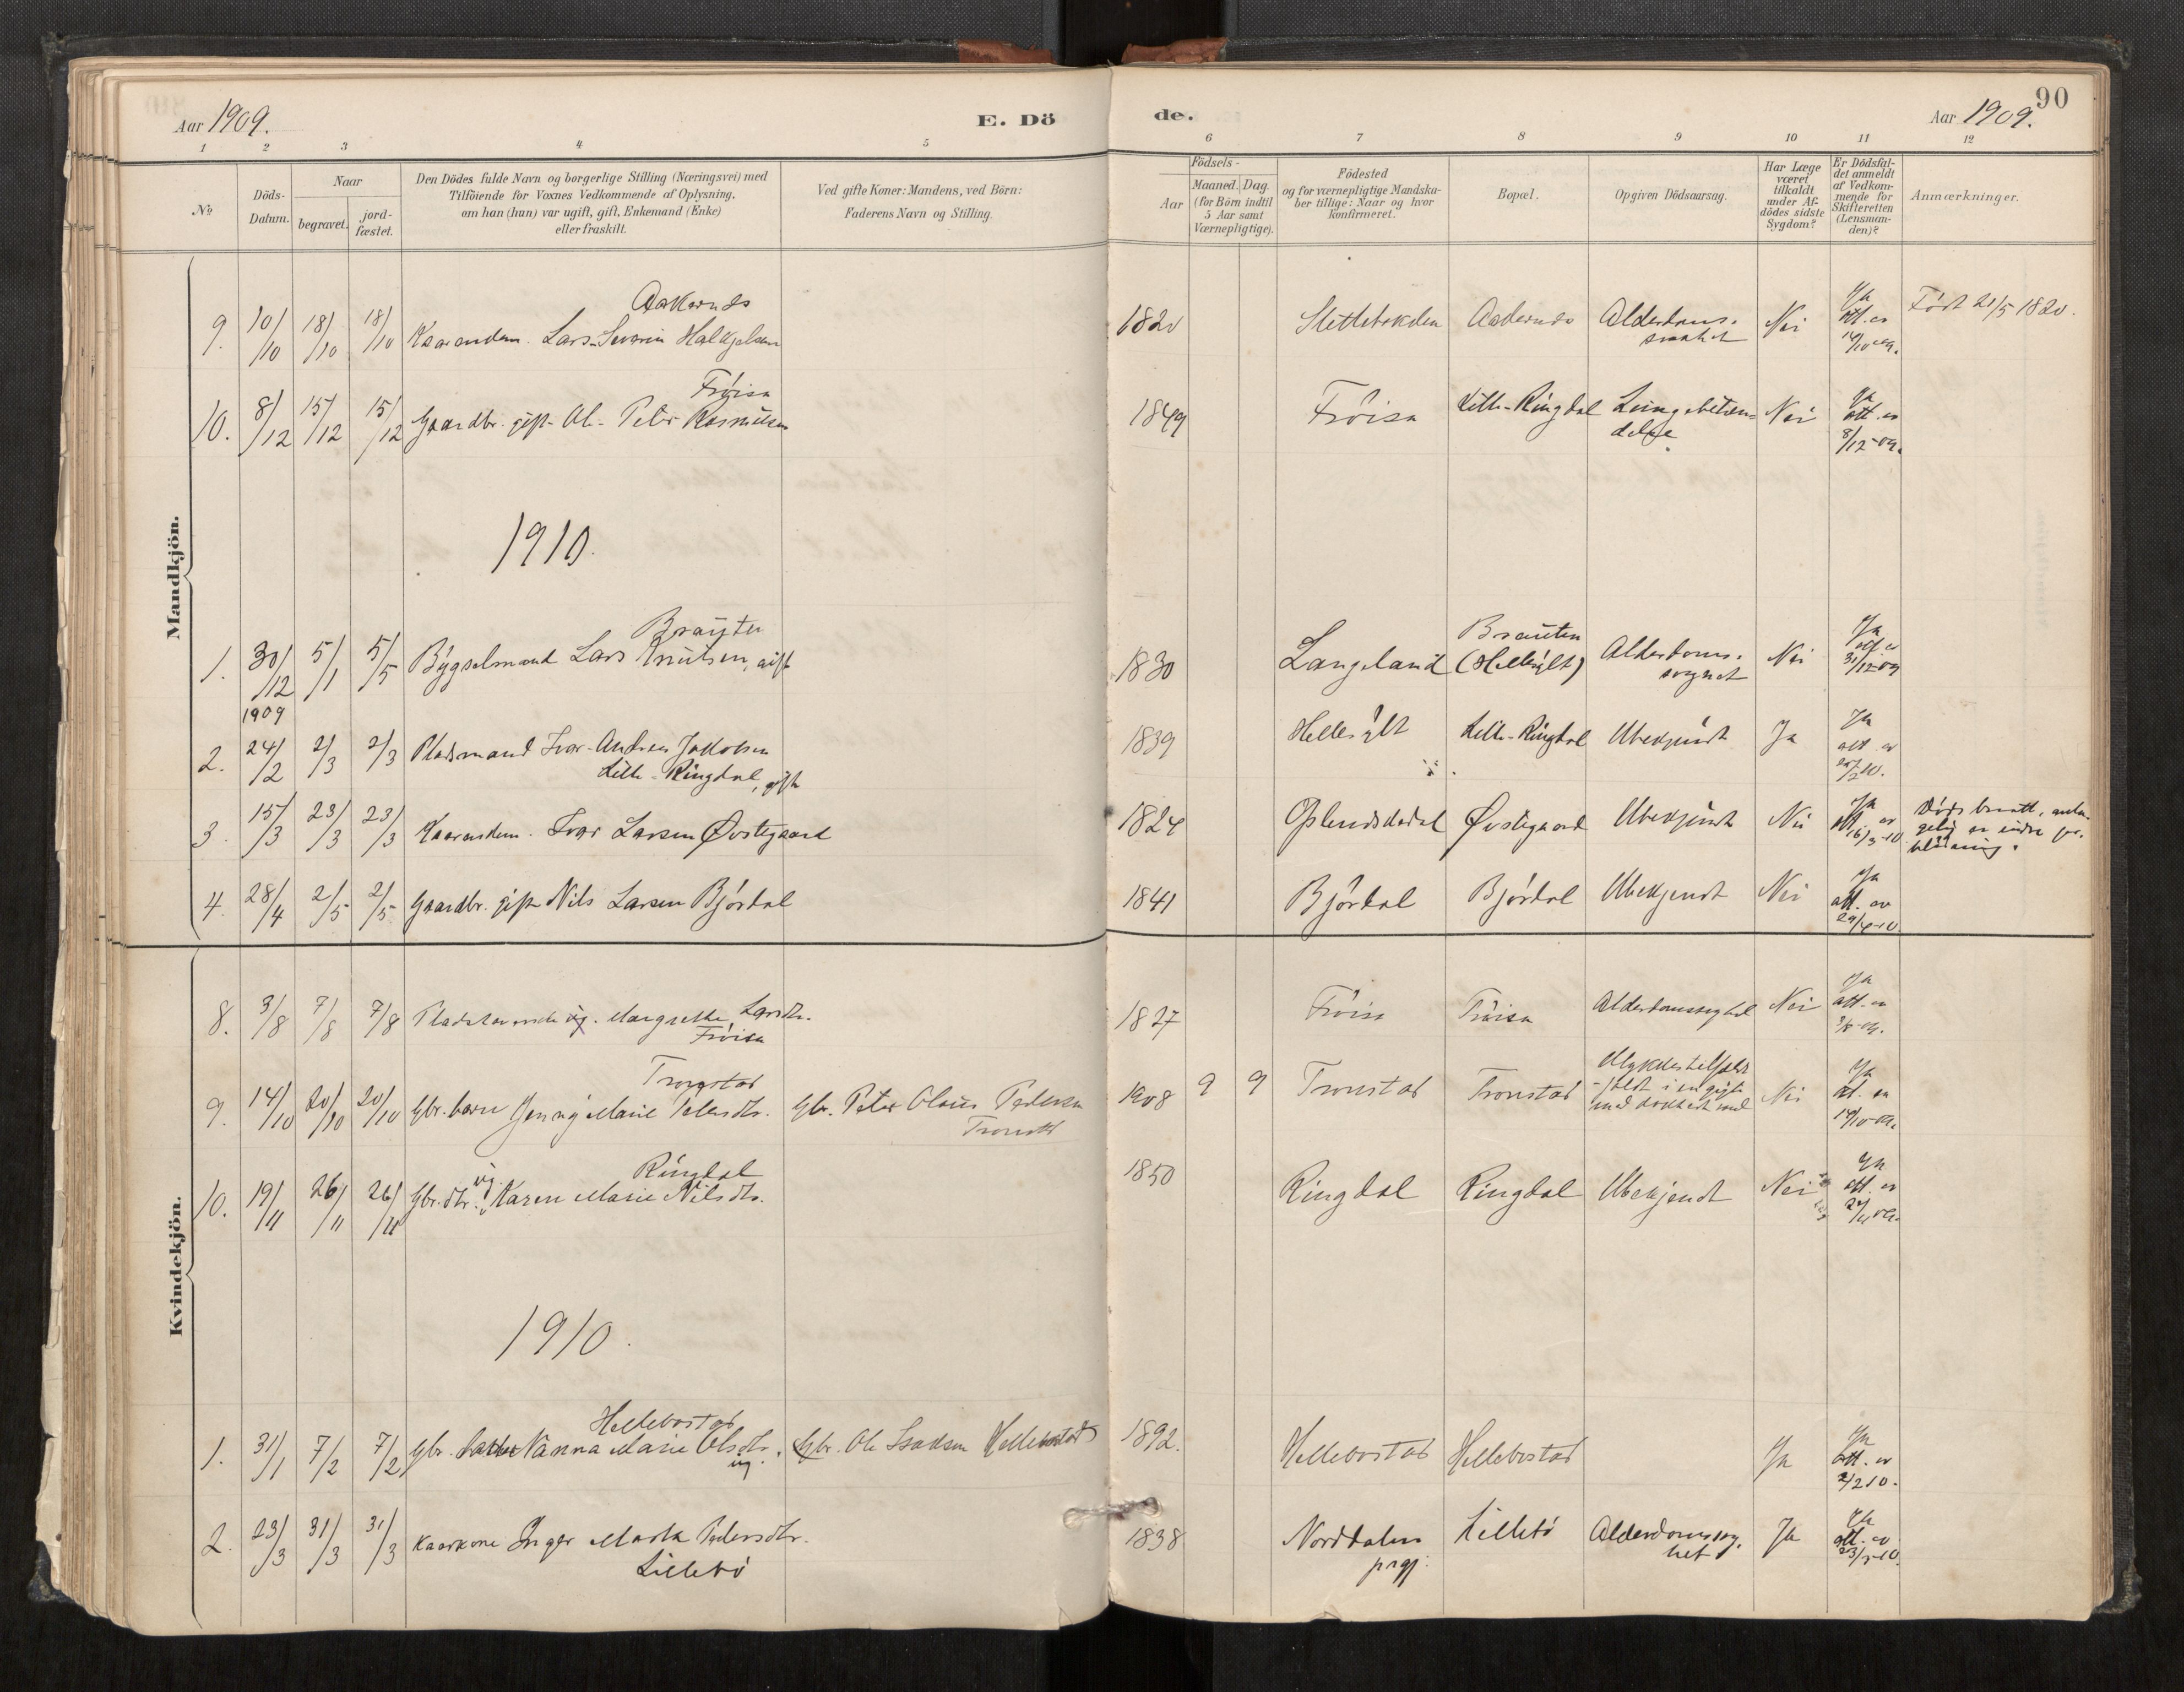 Aar 1909.
E. Dö
1 2 3 4 5
№
Döds-Datum.
Naar
begravet.
jord-fæstet.
Den Dödes fulde Navn og borgerlige Stilling (Næringsvei) med
Tilföiende for Voxnes Vedkommende af Oplysning,
om han (hun) var ugift, gift, Enkemand (Enke)
eller fraskilt.
Ved gifte Koner: Mandens, ved Börn:
Faderens Navn og Stilling.
Mandkjön.
Aakernes
9. 10/10 18/10 18/10 Kaarandem. Lars-Severin
Fröisa
10. 8/12 15/12 15/12 Gaardbr. gift Ole-Peter Rasmussen
1910.
1. 30/12 1909 5/1 5/5 Bygselmand Lars Knutsen, gift
2. 24/2 2/3 2/3 Pladsmand Ivar-Andreas Jakobsen
Litle-Ringdal, gift
3. 15/3 23/3 23/3 Kaarendem. Ivar Larsen Øvstegaard
4. 28/4 2/5 2/5 Gaardbr. gift Nils Larsen Bjórdal
Kvindekjön.
8. 3/8 7/8 7/8 ug. Margrethe Larsdtr.
Fröisa
Tronstad
9. 14/10 20/10 20/10 Gbr. barn Jenny Marie Petersdtr. Gbr. Peter Olaus Pedersen
Tronstad
ug. Ringdal
10. 19/11 26/11 26/11 Gbr. dtr. Karen Marie Nilsdtr.
1910.
Hellebostad
1. 31/1 7/2 7/2 Gbr. datter Nanna Marie Olsdtr. Gbr. Ole Isaksen Hellebostad
ug.
2. 23/3 31/3 31/3 Kaarkone Inger Marta Pedersdtr.
Lillebö
de.
90
Aar 1909.
6 7 8 9 10 11 12
Aar
Födsels-
Maaned. Dag.
(for Börn indtil
5 Aar samt
Værnepligtige).
Födested
og for værnepligtige Mandska-
ber tillige: Naar og hvor
konfirmeret.
Bopæl.
Opgiven Dödsaarsag.
Har Læge
været
tilkaldt
under Af-
dödes sidste
Sygdom?
Er Dödsfal-
det anmeldt
af Vedkom-
mende for
Skifteretten
(Lensman-
den)?
Anmærkninger.
1820 Aakernes Alderdoms- Nei Ja Født 21/5 1820.
svakhet att. av 14/10 09.
1849 Fröisa Litle-Ringdal Lungebetæn- Nei Ja
delse att. av 8/12-09.
1830 Langeland (Hellesylt) Alderdoms- Nei Ja
31/12-09
1839 Hellesylt Litle-Ringdal Ubekjendt Ja Ja
att. av
1824 Øvstegaard Ubekjendt Nei Ja Döds brått, anta-
att. av 16/3-10 gelig av indre for-
blödning.
1841 Bjórdal Bjórdal Ubekjendt Nei Ja
att. av
29/4-10
1827 Fröisa Fröisa Nei Ja
att. av
1908 9 9 Tronstad Tronstad Ulykkestilfælde Nei Ja
att. av
14/10-09.
1850 Ringdal Ringdal Ubekjendt Nei Ja
att. av
1892. Hellebostad Hellebostad Ja Ja
att. av
2/2 10.
1838 Norddalen Lillebö Alderdomssvag- Ja Ja
prgj. het att. av
23/3-10.